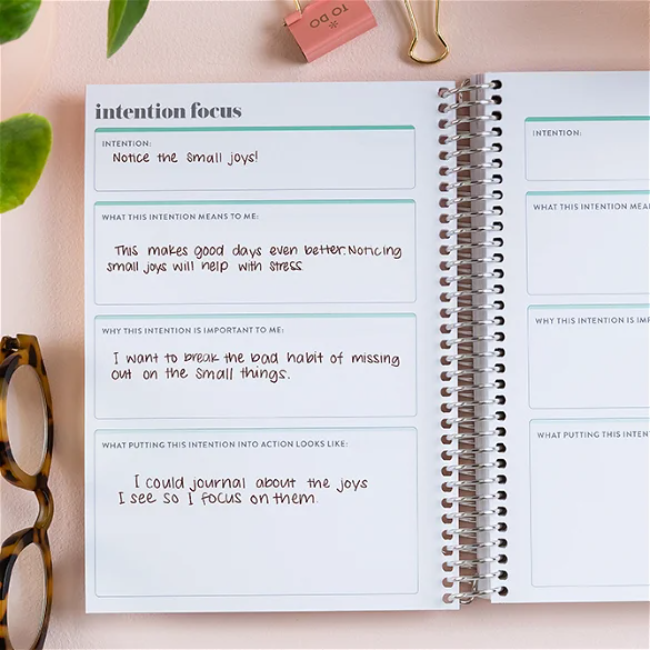 TO DO
intention focus
INTENTION:
Notice the small joys!
WHAT THIS INTENTION MEANS TO ME:
This makes good days even better. Noticing
small joys will help with stress
WHY THIS INTENTION IS IMPORTANT TO ME:
I want to break the bad habit of missing
out on the small things.
WHAT PUTTING THIS INTENTION INTO ACTION LOOKS LIKE:
I could journal about the joys
I see so I focus on them.
INTENTION:
WHAT THIS INTENTION MEA
WHY THIS INTENTION IS IM
WHAT PUTTING THIS INTEN